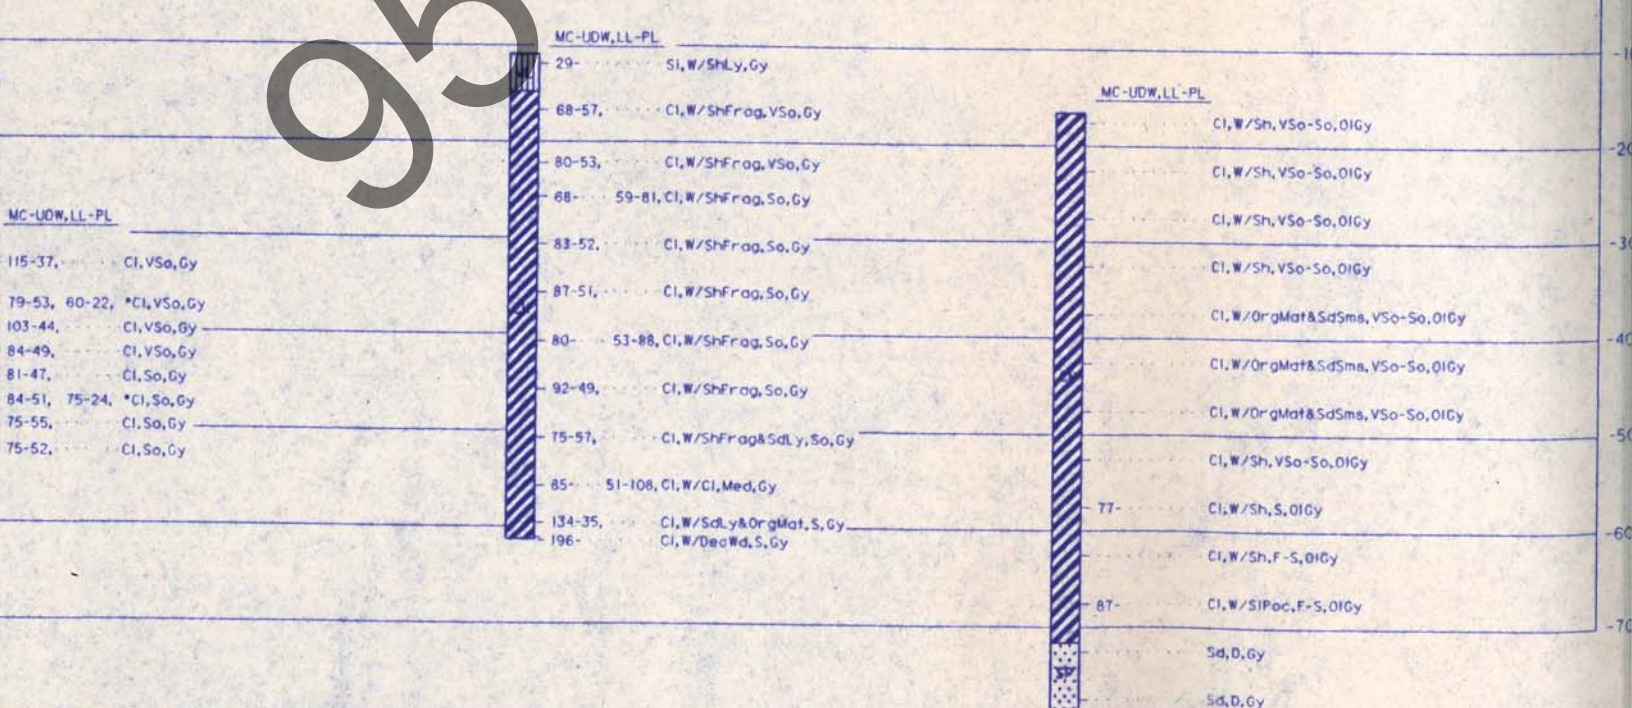 95
MC-UDW,LL-PL
115-37, Cl,VSo,Gy
79-53, 60-22, *Cl,VSo,Gy
103-44, Cl,VSo,Gy
84-49, Cl,VSo,Gy
81-47, Cl,So,Gy
84-51, 75-24, *Cl,So,Gy
75-55, Cl,So,Gy
75-52, Cl,So,Gy
MC-UDW,LL-PL
29- Si,W/ShLy,Gy
68-57, Cl,W/ShFrag,VSo,Gy
80-53, Cl,W/ShFrag,VSo,Gy
68- 59-81, Cl,W/ShFrag,So,Gy
83-52, Cl,W/ShFrag,So,Gy
87-51, Cl,W/ShFrag,So,Gy
80- 53-88, Cl,W/ShFrag,So,Gy
92-49, Cl,W/ShFrag,So,Gy
75-57, Cl,W/ShFrag&SdLy,So,Gy
85- 51-108, Cl,W/Cl,Med,Gy
134-35, Cl,W/SdLy&OrgMat,S,Gy
196- Cl,W/DecWd,S,Gy
MC-UDW,LL-PL
Cl,W/Sh,VSo-So,OlGy
Cl,W/Sh,VSo-So,OlGy
Cl,W/Sh,VSo-So,OlGy
Cl,W/Sh,VSo-So,OlGy
Cl,W/OrgMat&SdSms,VSo-So,OlGy
Cl,W/OrgMat&SdSms,VSo-So,OlGy
Cl,W/OrgMat&SdSms,VSo-So,OlGy
Cl,W/Sh,VSo-So,OlGy
77- Cl,W/Sh,S,OlGy
Cl,W/Sh,F-S,OlGy
87- Cl,W/SlPoc,F-S,OlGy
Sd,D,Gy
SP
Sd,D,Gy
-20
-30
-40
-50
-60
-70